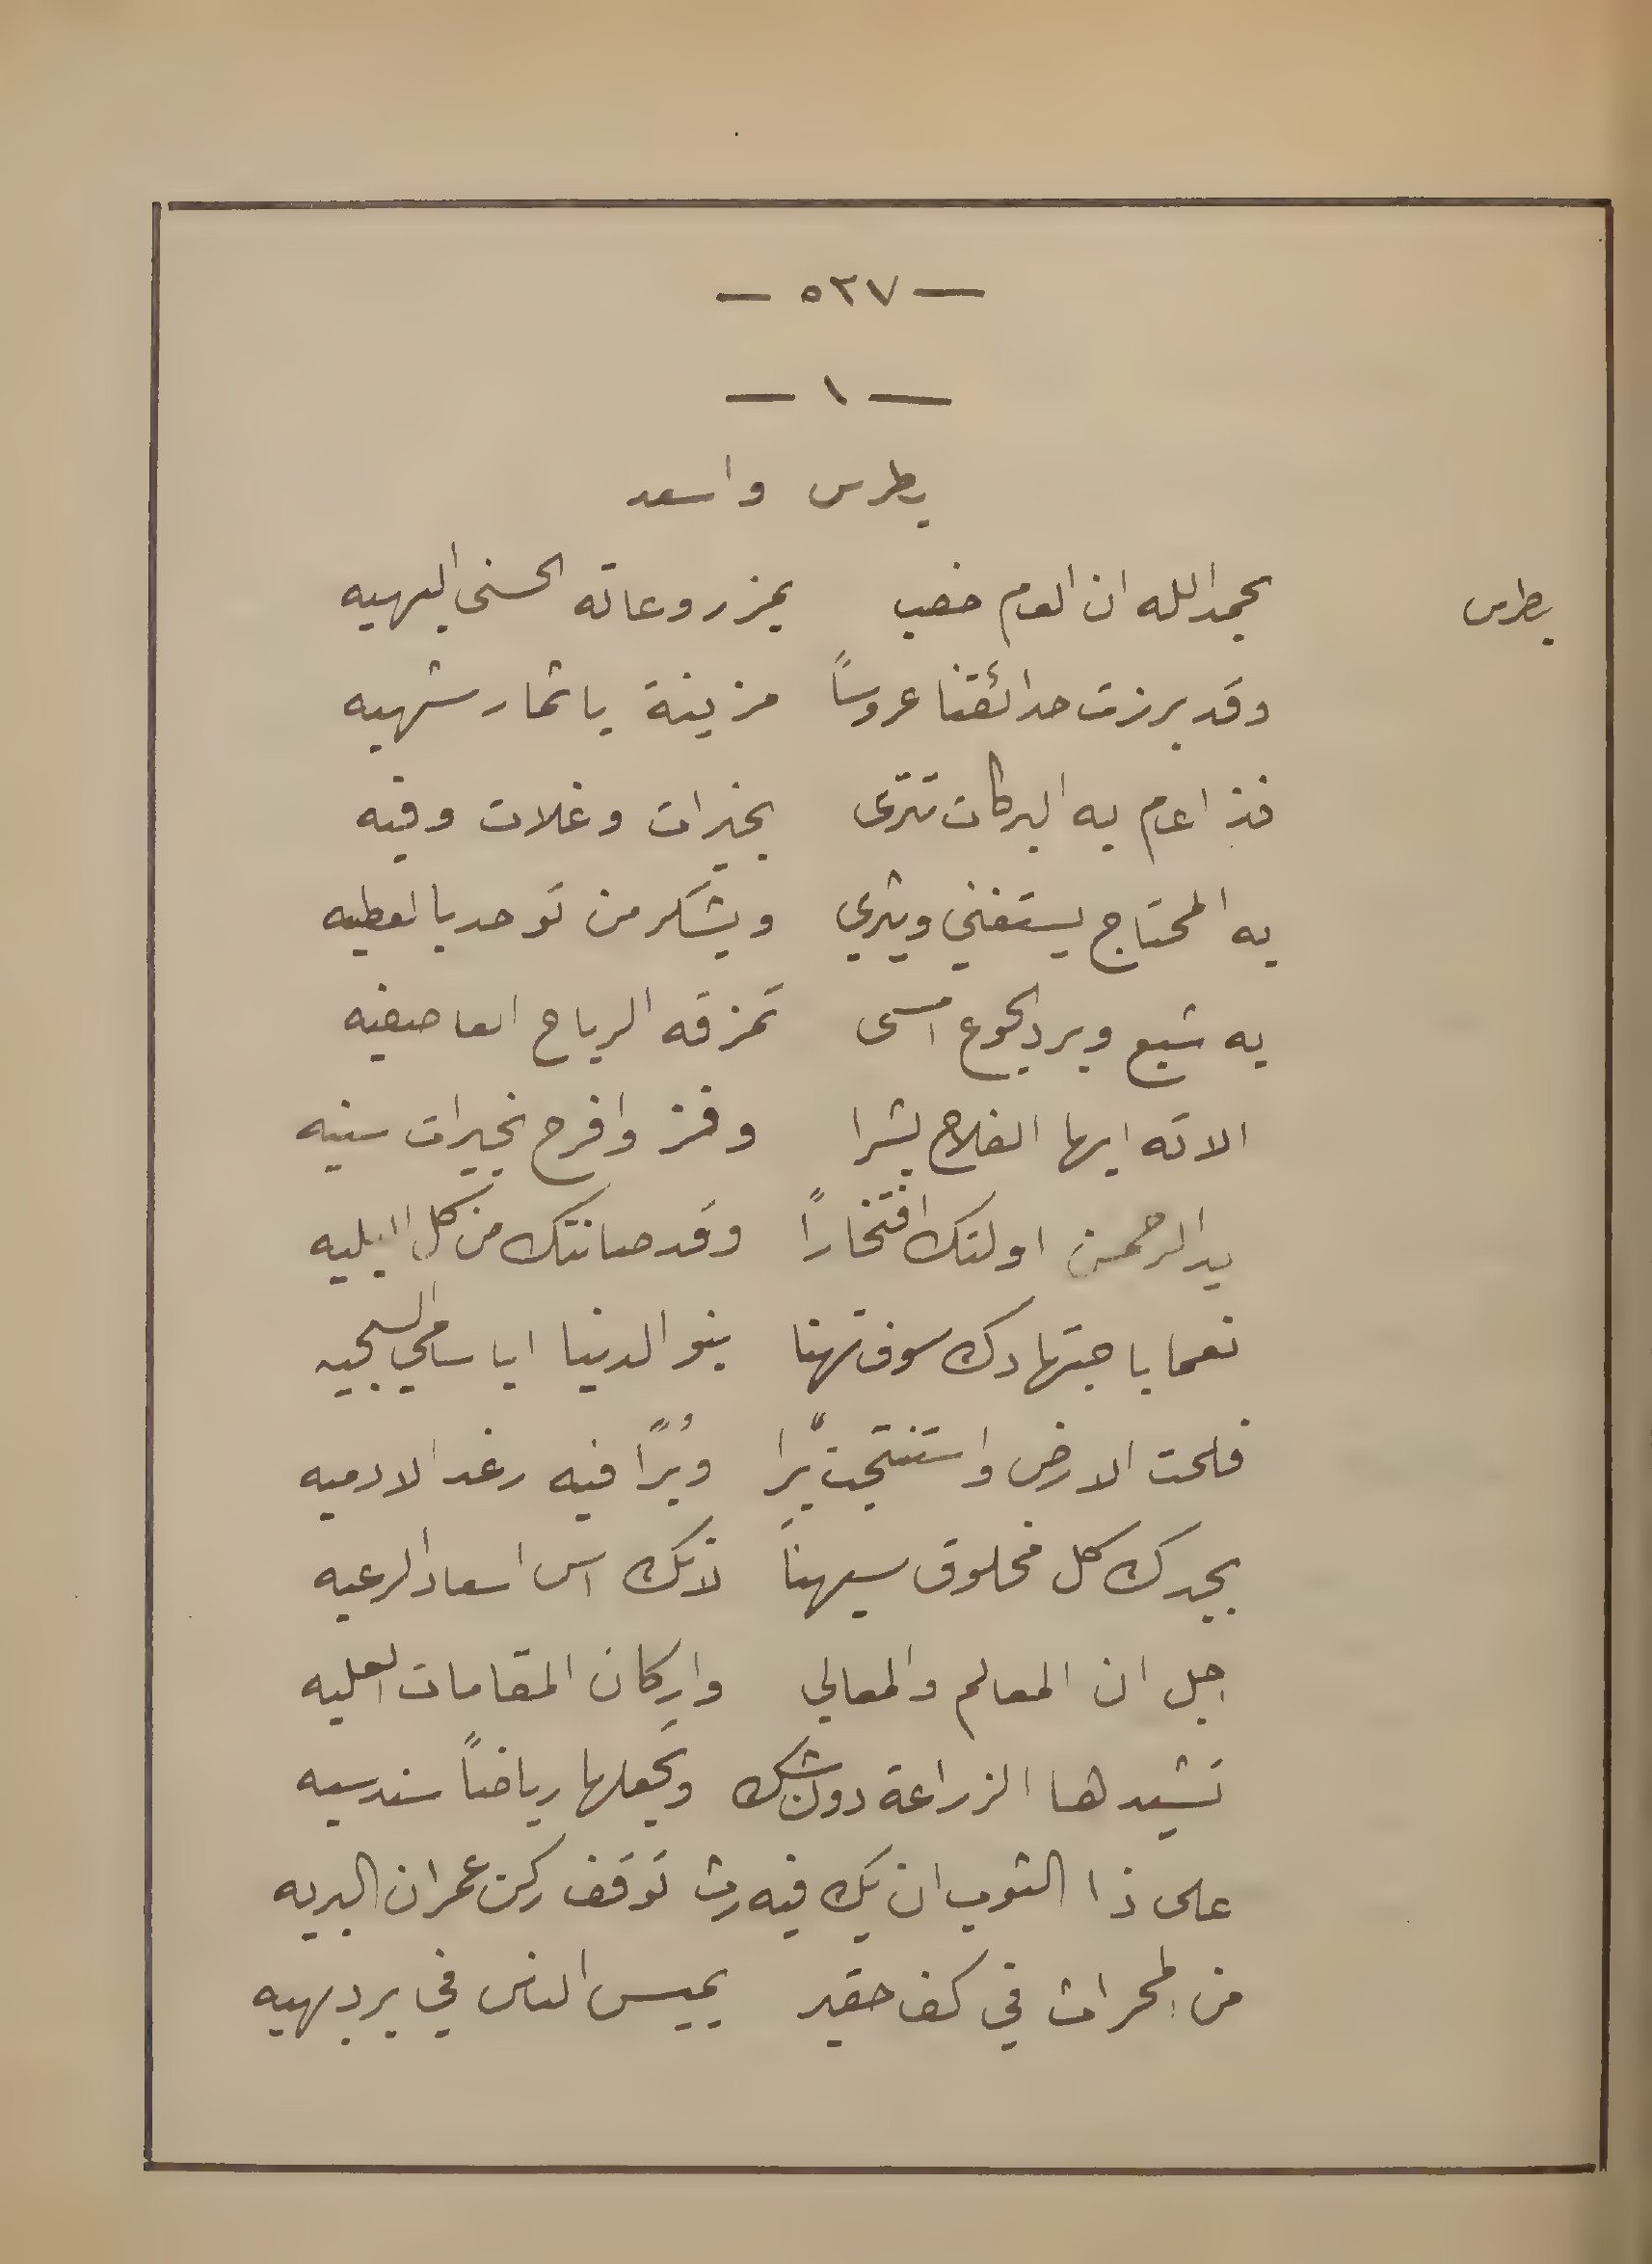 — ٥٢٧ —
— ١ —
بطرس واسعد
بطرس بحمد الله ان العام خصب بمزروعاته الحسنى البهيه
وقد برزت حدائقنا عروساً مزينة باثمار شهيه
فذا عام به البركات تترى بخيرات وغلات وفيه
به المحتاج يستغني ويثري ويشكر من توحد بالعطيه
به شبع وبرد الجوع امسى تمزقه الرياح العاصفيه
الاته ايها الفلاح بشرا وفز وافرح بخيرات سنيه
يد الرحمن اولتك افتخاراً وقد صانتك من كل البليه
نعما باجتهادك سوف تهنا بنو الدنيا ايا سامي السجيه
فلحت الارض واستنتجت بّرا وبُرًا فيه رغد الادميه
بجدك كل مخلوق سيهنأ لانك اس اسعاد الرعيه
اجل ان المعالم والمعالي واركان المقامات العليه
تشيدها الزراعة دون شك وتجعلها رياضاً سندسيه
على ذا الثوب ان يك فيه رث توقف ركن عمران البريه
من المحراث في كف حقير يميس الناس في برد بهيه